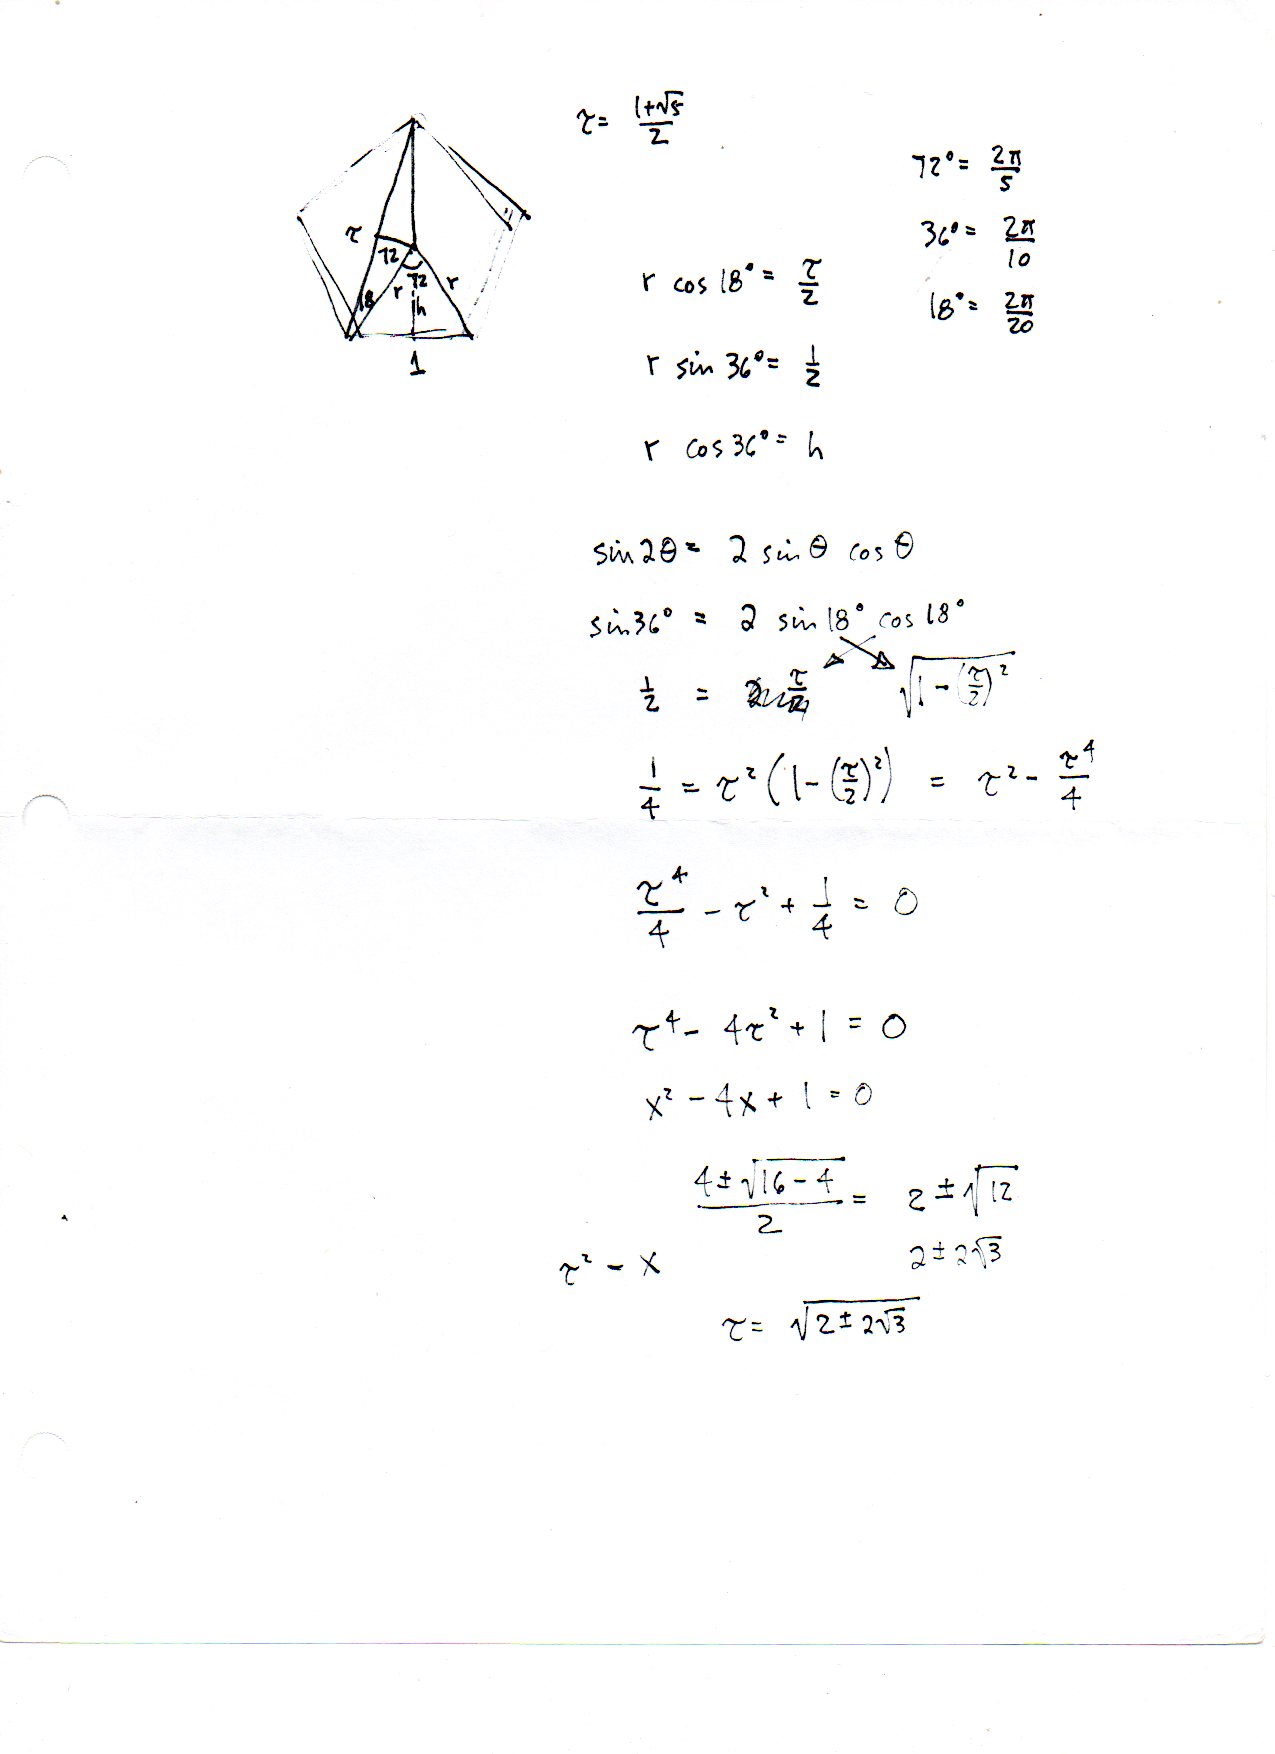 τ = (1+√5)/2
72° = 2π/5
36° = 2π/10
18° = 2π/20
τ
72
18
r
72
r
h
1
r cos 18° = τ/2
r sin 36° = 1/2
r cos 36° = h
sin 2θ = 2 sin θ cos θ
sin 36° = 2 sin 18° cos 18°
1/2 = τ √(1 - (τ/2)²)
1/4 = τ² (1 - (τ/2)²) = τ² - τ⁴/4
τ⁴/4 - τ² + 1/4 = 0
τ⁴ - 4τ² + 1 = 0
x² - 4x + 1 = 0
(4 ± √(16 - 4))/2 = 2 ± √12
2 ± 2√3
τ² - x
τ = √(2 ± 2√3)